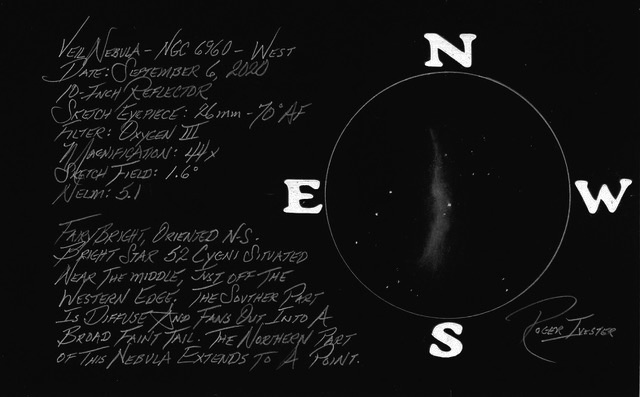 Veil Nebula - NGC 6960 - West
Date: September 6, 2020
10-Inch Reflector
Sketch Eyepiece: 26mm - 70° AF
Filter: Oxygen III
Magnification: 44x
Sketch Field: 1.6°
NELM: 5.1
Fairy Bright, Oriented N-S.
Bright Star 52 Cygni Situated
Near The Middle, Just Off The
Western Edge. The Souther Part
Is Diffuse And Fans Out Into A
Broad Faint Tail. The Northern Part
Of This Nebula Extends To A Point.
N
E
W
S
Roger Ivester